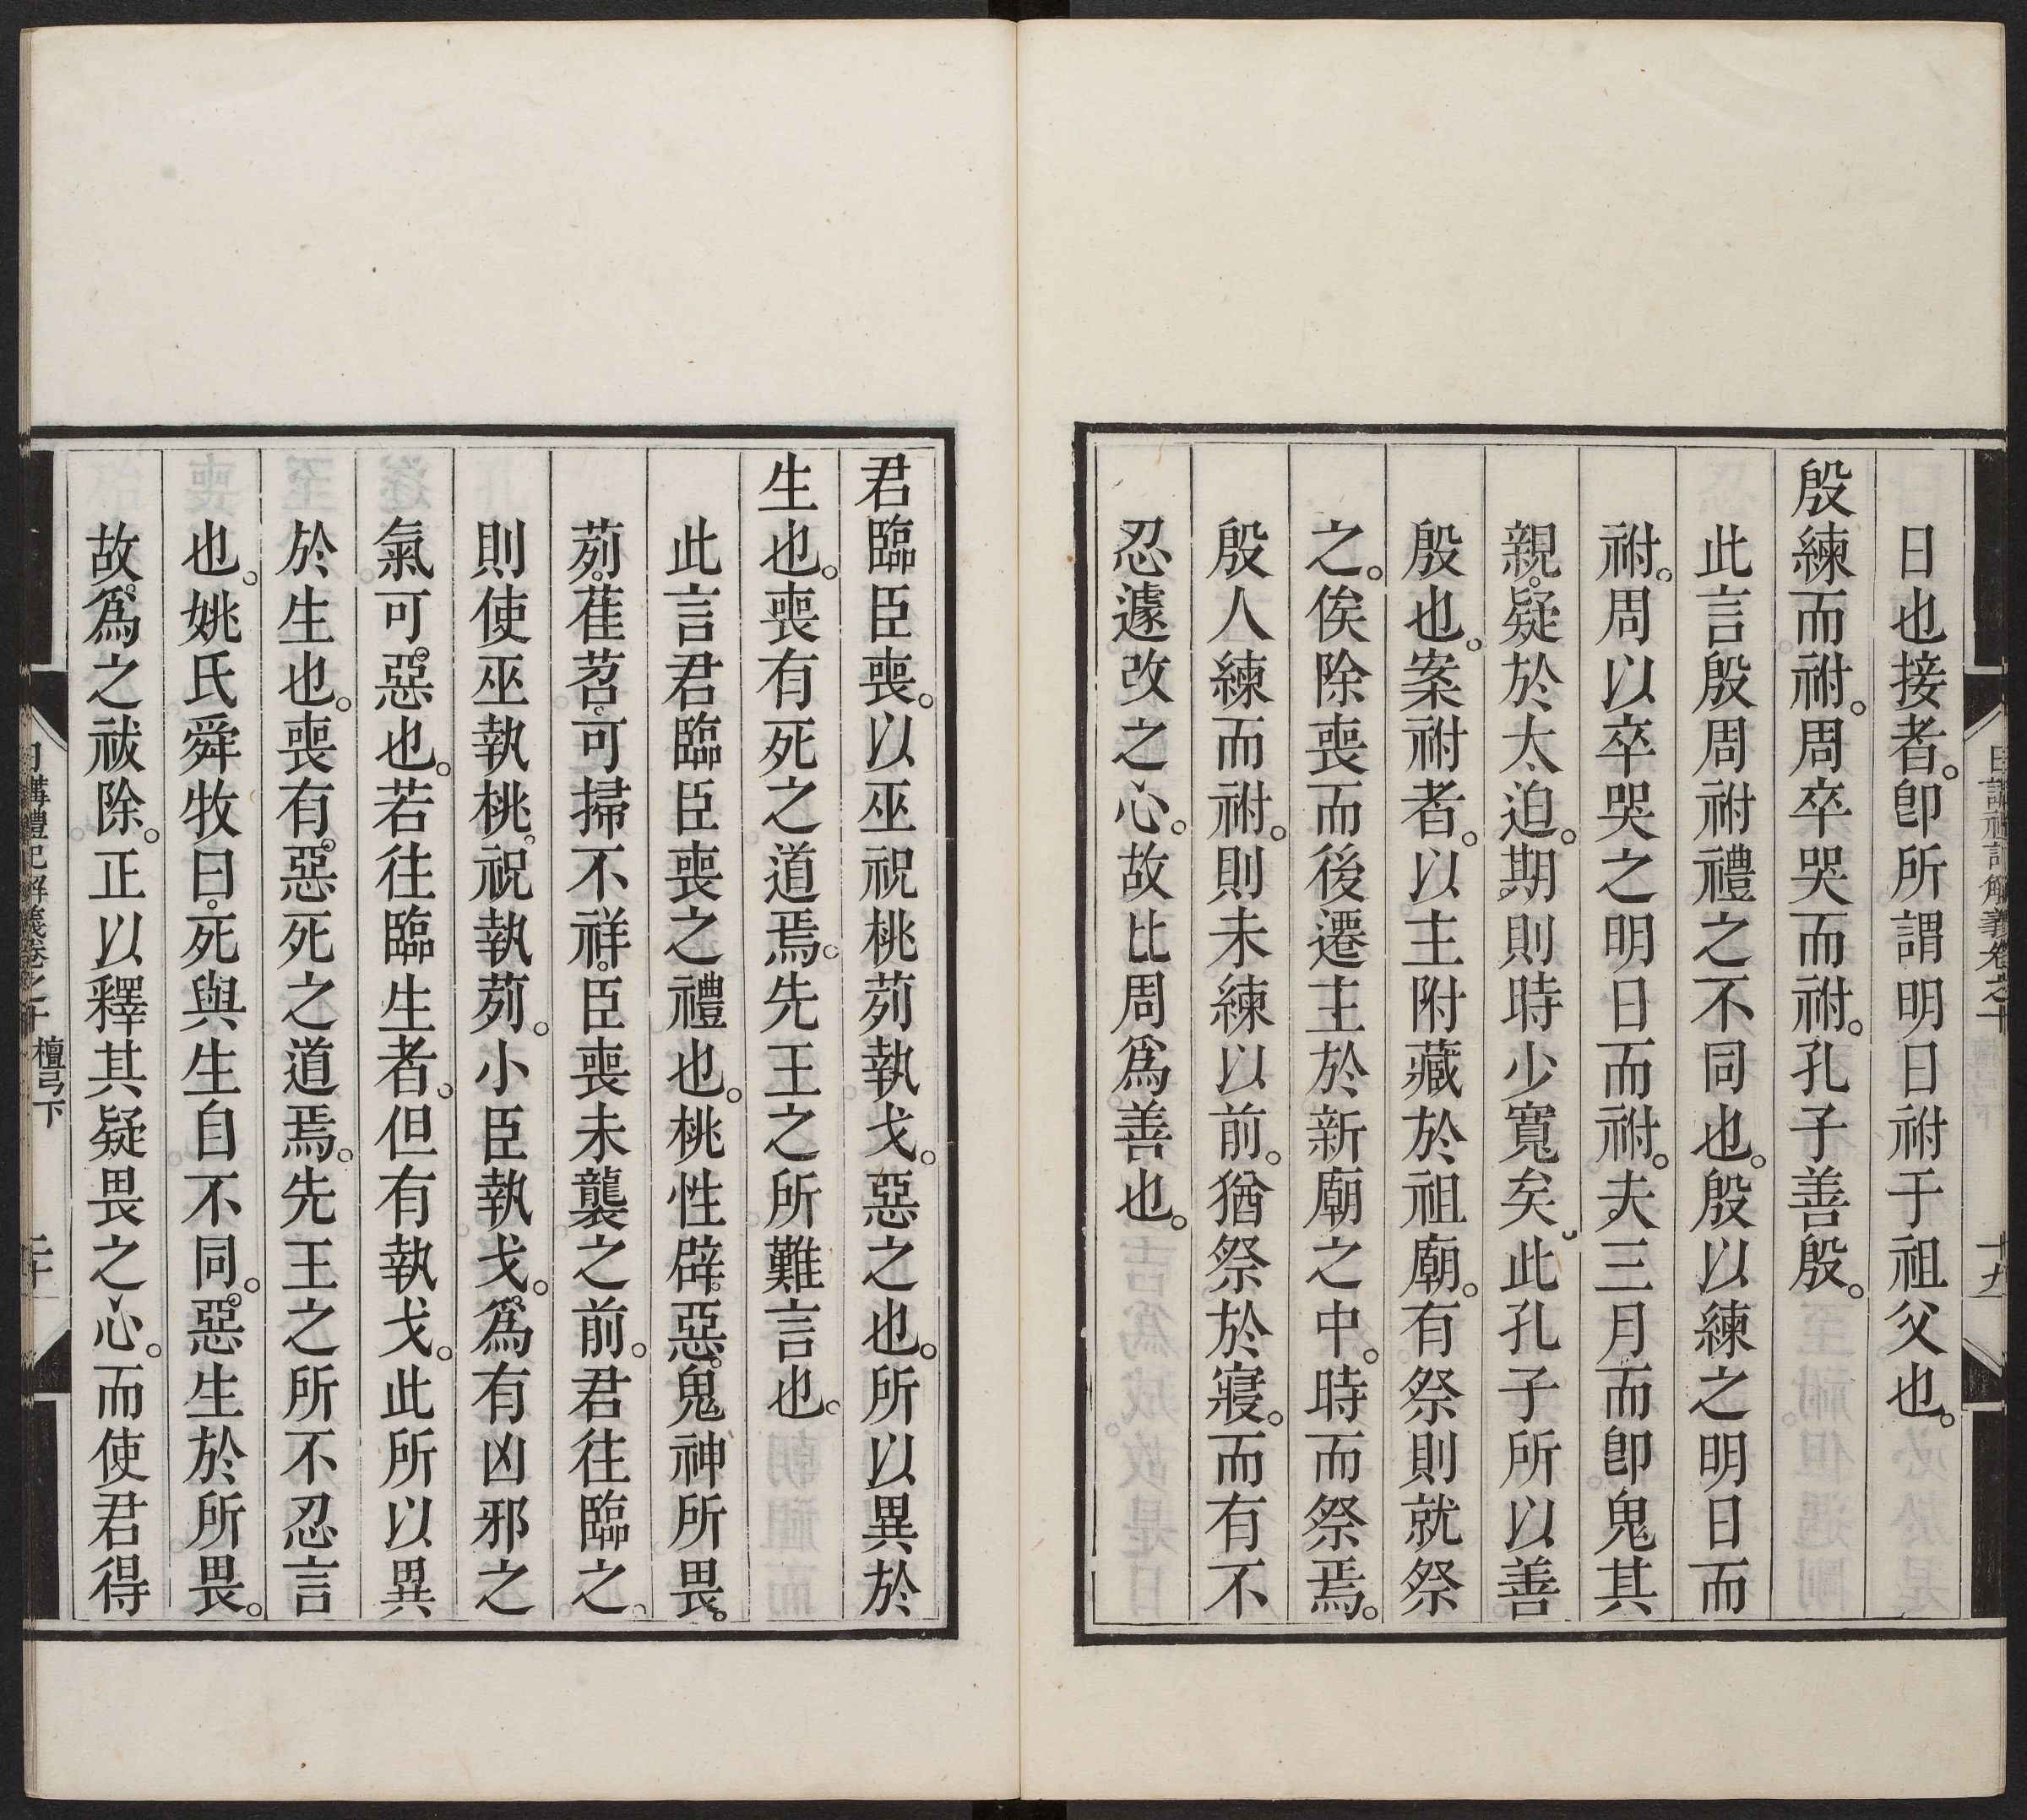 日講禮記解義卷之十
十九
日也接者。卽所謂明日祔于祖父也。
殷練而祔。周卒哭而祔。孔子善殷。
此言殷周祔禮之不同也。殷以練之明日而
祔。周以卒哭之明日而祔。夫三月而卽鬼其
親。疑於太迫。期則時少寬矣。此孔子所以善
殷也。案祔者。以主附藏於祖廟。有祭則就祭
之。俟除喪而後遷主於新廟之中。時而祭焉。
殷人練而祔。則未練以前。猶祭於寢。而有不
忍遽改之心。故比周爲善也。
君臨臣喪。以巫祝桃茢執戈。惡之也。所以異於
生也。喪有死之道焉。先王之所難言也。
此言君臨臣喪之禮也。桃性辟惡。鬼神所畏。
茢。萑苕。可掃不祥。臣喪未襲之前。君往臨之。
則使巫執桃。祝執茢。小臣執戈。爲有凶邪之
氣可惡也。若往臨生者。但有執戈。此所以異
於生也。喪有惡死之道焉。先王之所不忍言
也。姚氏舜牧曰。死與生自不同。惡生於所畏。
故爲之祓除。正以釋其疑畏之心。而使君得
日講禮記解義卷之十
檀弓下
二十